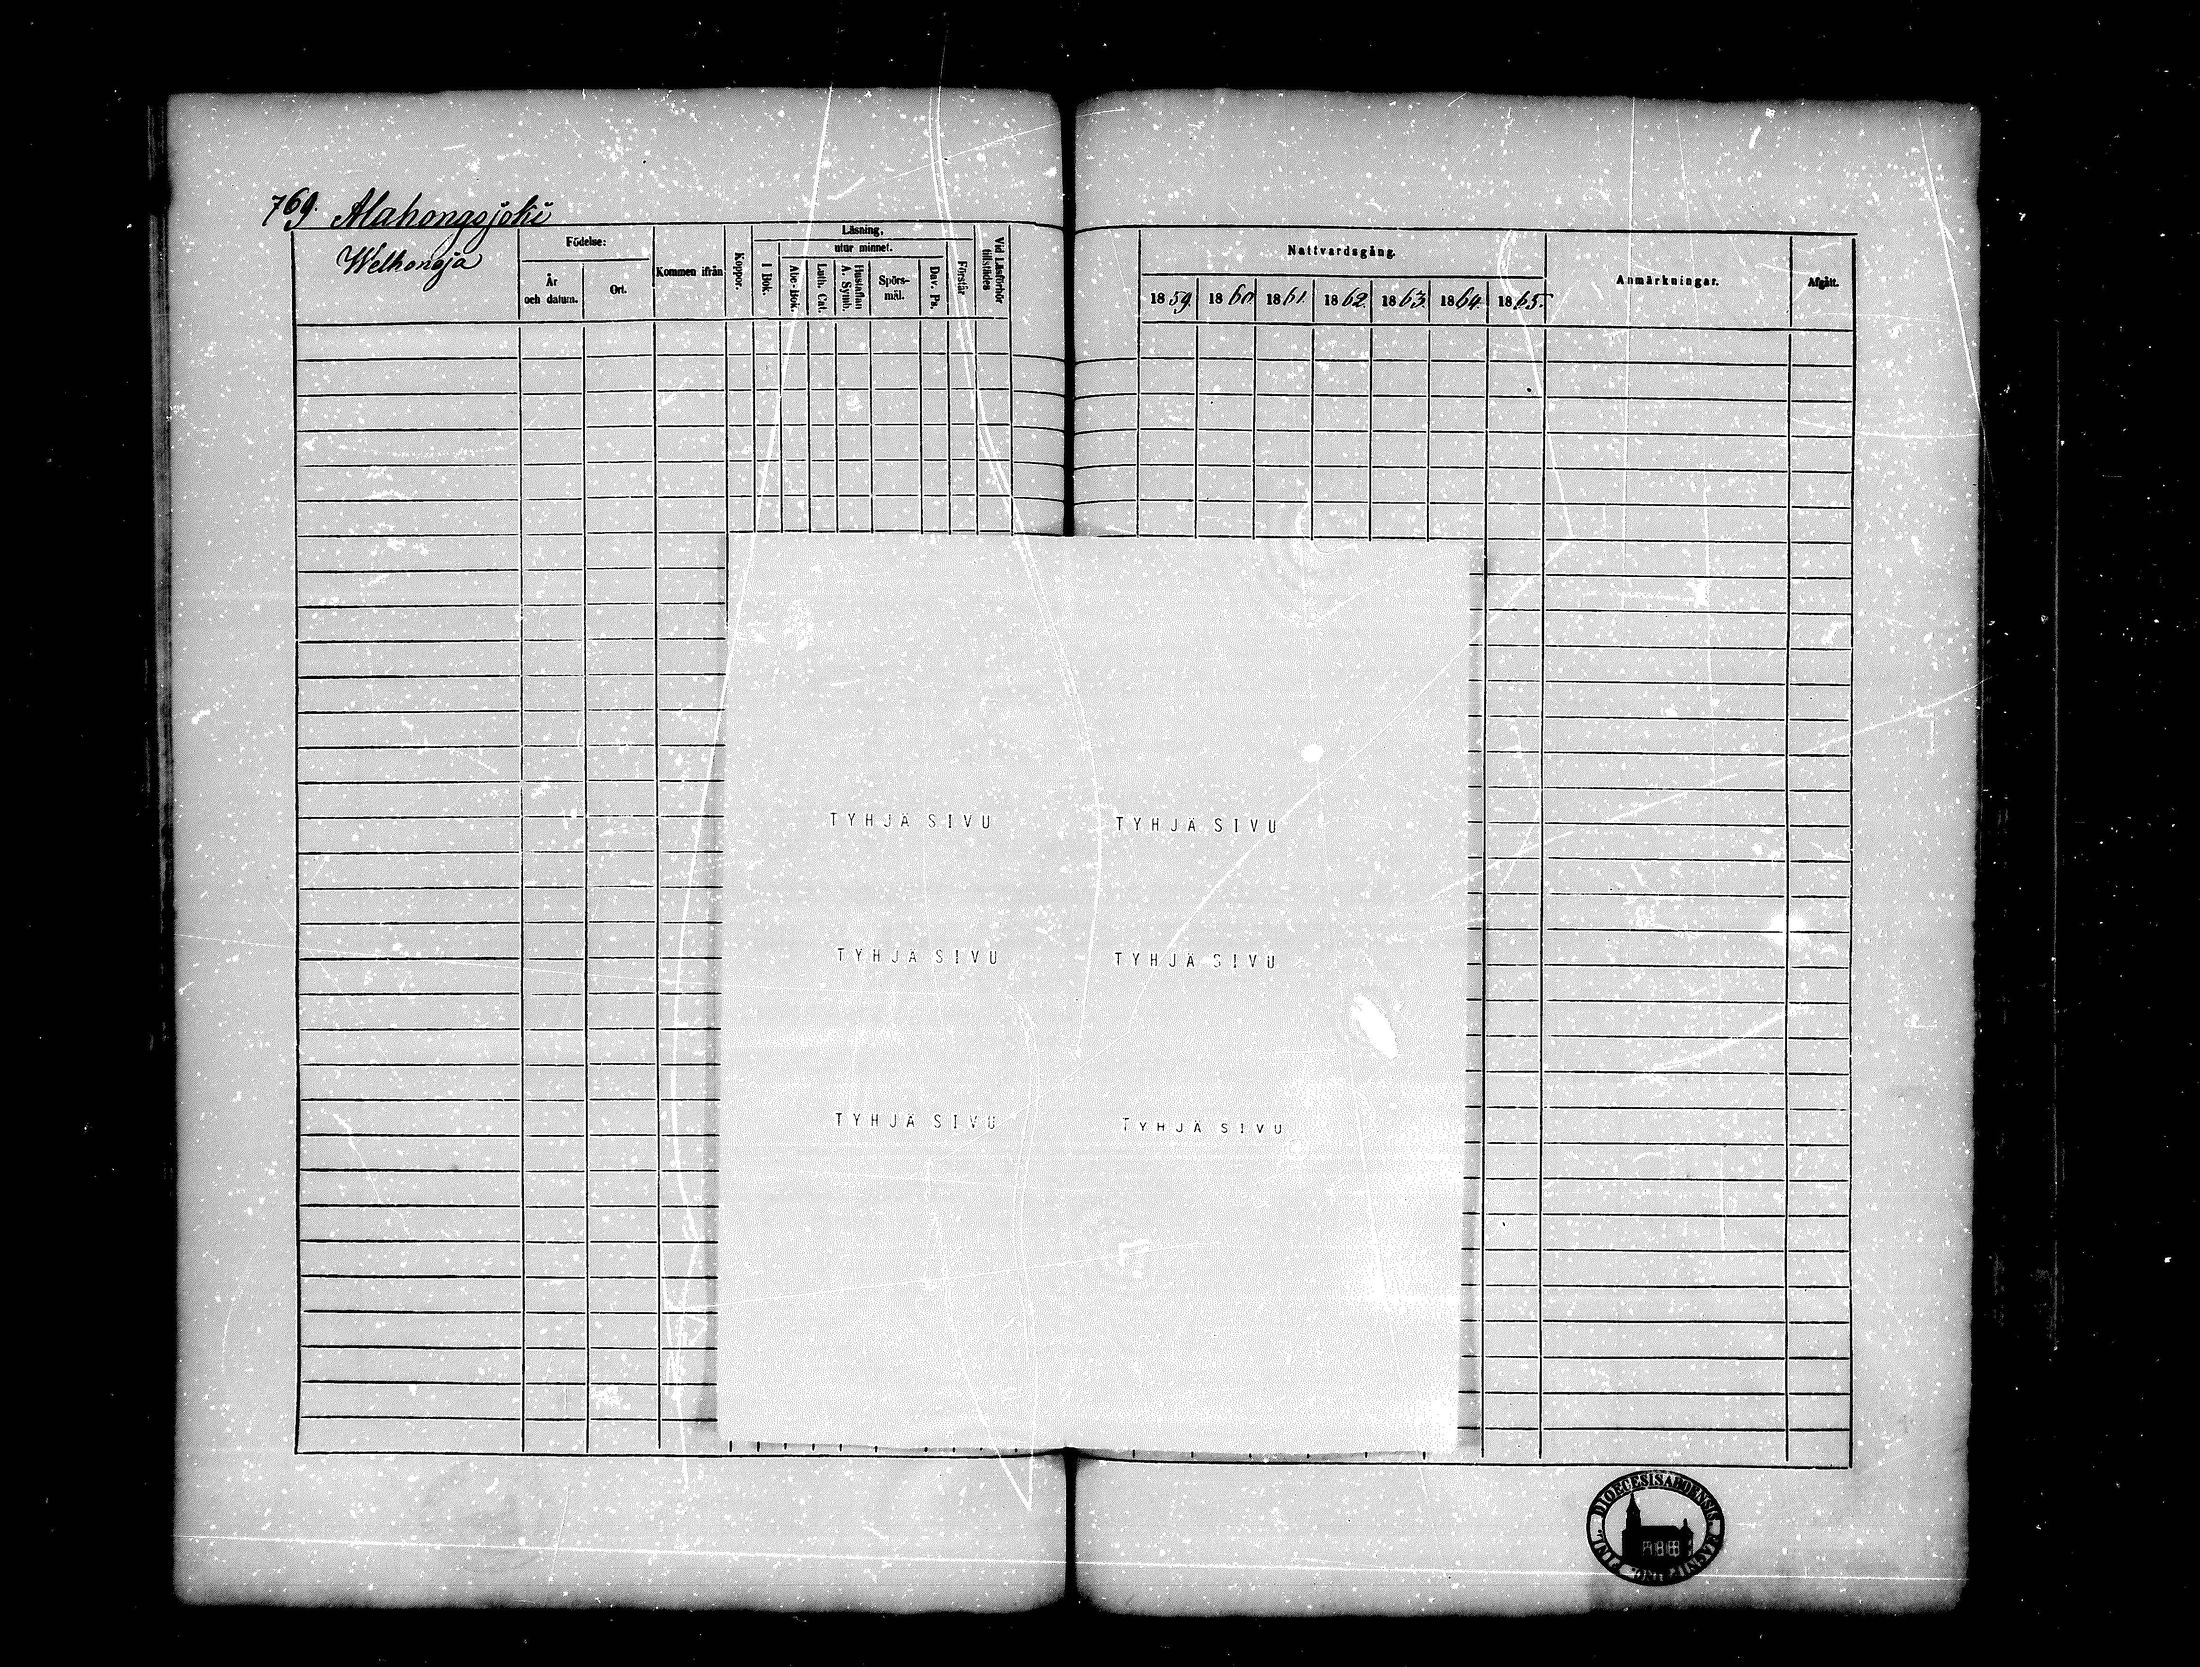 769. Alahongojoki
Welhonoja
Födelse:
År
och datum.
Ort.
Kommen ifrån
Koppor.
Läsning,
utur minnet.
I Bok.
Abc-Bok.
Luth. Cat.
Hustaflan
A. Symb.
Spörs-
mål.
Dav. Ps.
Förstår
Vid Läsförhör
tillstädes
Nattvardsgång.
1859. 1860. 1861. 1862. 1863. 1864. 1865.
Anmärkningar.
Afgått.
TYHJÄ SIVU TYHJÄ SIVU
TYHJÄ SIVU TYHJÄ SIVU
TYHJÄ SIVU TYHJÄ SIVU
DIOECESIS ABOENSIS